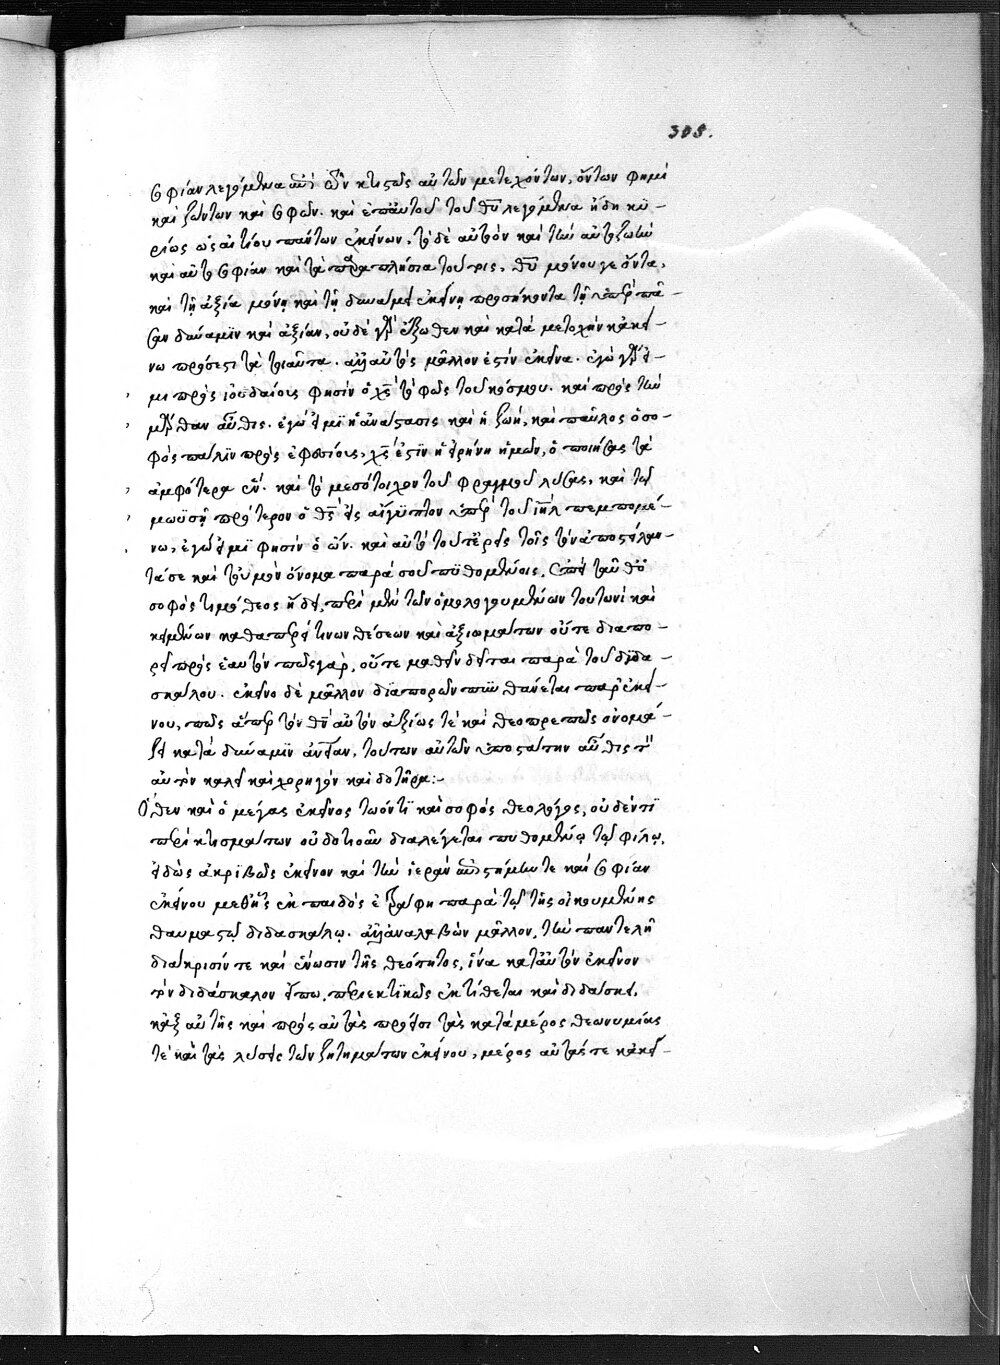 305.
σοφίαν λεγόμενα ἀπὸ τῶν κτιστῶς αὐτῶν μετεχόντων, ὄντων φημὶ
καὶ ζώντων καὶ σοφῶν. καὶ ἐπ' αὐτοῦ τοῦ θῡ λεγόμενα ἤδη κυ-
ρίως ὡς αἰτίου πάντων ἐκείνων, τὸ δὲ αὐτοὸν καὶ τὴν αὐτοζωὴν
καὶ αὐτοσοφίαν καὶ τὰ παραπλήσια τούτοις, θῡ μόνου γε ὄντα,
καὶ τῇ ἀξίᾳ μόνῃ καὶ τῇ δυνάμει ἐκείνῃ προσήκοντα τῇ ὑπὲρ πᾶ-
σαν δύναμϊν καὶ ἀξίαν, οὐδὲ γὰρ ἔξωθεν καὶ κατὰ μετοχὴν κἀκεί-
νῳ πρόσεστι τὰ τοιαῦτα. ἀλλ' αὐτὸς μᾶλλον ἐστὶν ἐκεῖνα. ἐγὼ γὰρ εἰ-
μι πρὸς ἰουδαίους φησὶν ὁ χς̄ τὸ φῶς τοῦ κόσμου. καὶ πρὸς τὴν
μάρθαν αὖθις. ἐγώ εἰμϊ ἡ ἀνάστασις καὶ ἡ ζωή, καὶ παῦλος ὁ σο-
φὸς πάλϊν πρὸς ἐφεσίους, χς̄ ἐστϊν ἡ εἰρήνη ἡμῶν, ὁ ποιήσας τὰ
ἀμφότερα ἕν. καὶ τὸ μεσότοιχον τοῦ φραγμοῦ λύσας, καὶ τῷ
μωϋσῇ πρότερον ὁ θς̄ εἰς αἴγϋπτον ὑπὲρ τοῦ ιη̄λ πεμπομέ-
νῳ, ἐγώ εἰμϊ φησὶν ὁ ὤν. καὶ αὐτὸ τοῦτ' ἐρεῖς τοῖς τὸν ἀποστείλαν-
τά σε καὶ τοὐμὸν ὄνομα παρὰ σοῦ πϋθομένοις.
σοφὸς τιμόθεος ᾔδει, περὶ μὲν τῶν ὁμολογουμένων τουτωνὶ καὶ
κειμένων καθαπερεί τινων θέσεων καὶ ἀξιωμάτων οὔτε διαπο-
ρεῖ πρὸς ἑαυτὸν πῶς γὰρ, οὔτε μαθεῖν δεῖται παρὰ τοῦ δϊδα-
σκάλου. ἐκεῖνο δὲ μᾶλλον δϊαπορῶν πϋνθάνεται παρ' ἐκεί-
νου, πῶς ἅπερ τὸν θν̄ αὐτὸν ἀξίως τὲ καὶ θεοπρεπῶς ὀνομά-
ζει κατὰ δύναμϊν εἶναι, τούτων αὐτῶν ὑποστάτην αὖθις τὸν
αὐτὸν καλεῖ καὶ χορηγὸν καὶ δοτῆρα:-
Ὅθεν καὶ ὁ μέγας ἐκεῖνος τωόντϊ καὶ σοφὸς θεολόγος, οὐδέν τϊ
περὶ κτισμάτων οὐδοτιοῦν διαλέγεται πυθομένῳ τῷ φίλῳ,
εἰδὼς ἀκρϊβῶς ἐκεῖνον καὶ τὴν ἱερὰν ἐπιστήμην τε καὶ σοφίαν
ἐκείνου μεθ' ἧς ἐκ παιδὸς ἐτράφη παρὰ τῷ τῆς οἰκουμένης
θαυμαστῷ διδασκάλῳ. ἀλλ' ἀναλαβὼν μᾶλλον, τὴν παντελῆ
διάκρισίν τε καὶ ἕνωσιν τῆς θεότητος, ἵνα κατ' αὐτὸν ἐκεῖνον
τὸν διδάσκαλον εἴπω, περιεκτϊκῶς ἐκτίθεται καὶ διδάσκει,
κἀξ αὐτῆς καὶ πρὸς αὐτὰς πρόεισι τὰς κατὰ μέρος θεωνυμίας
τὲ καὶ τὰς λύσεις τῶν ζητημάτων ἐκείνου, μέρος αὐτάς τε κἀκεῖ-